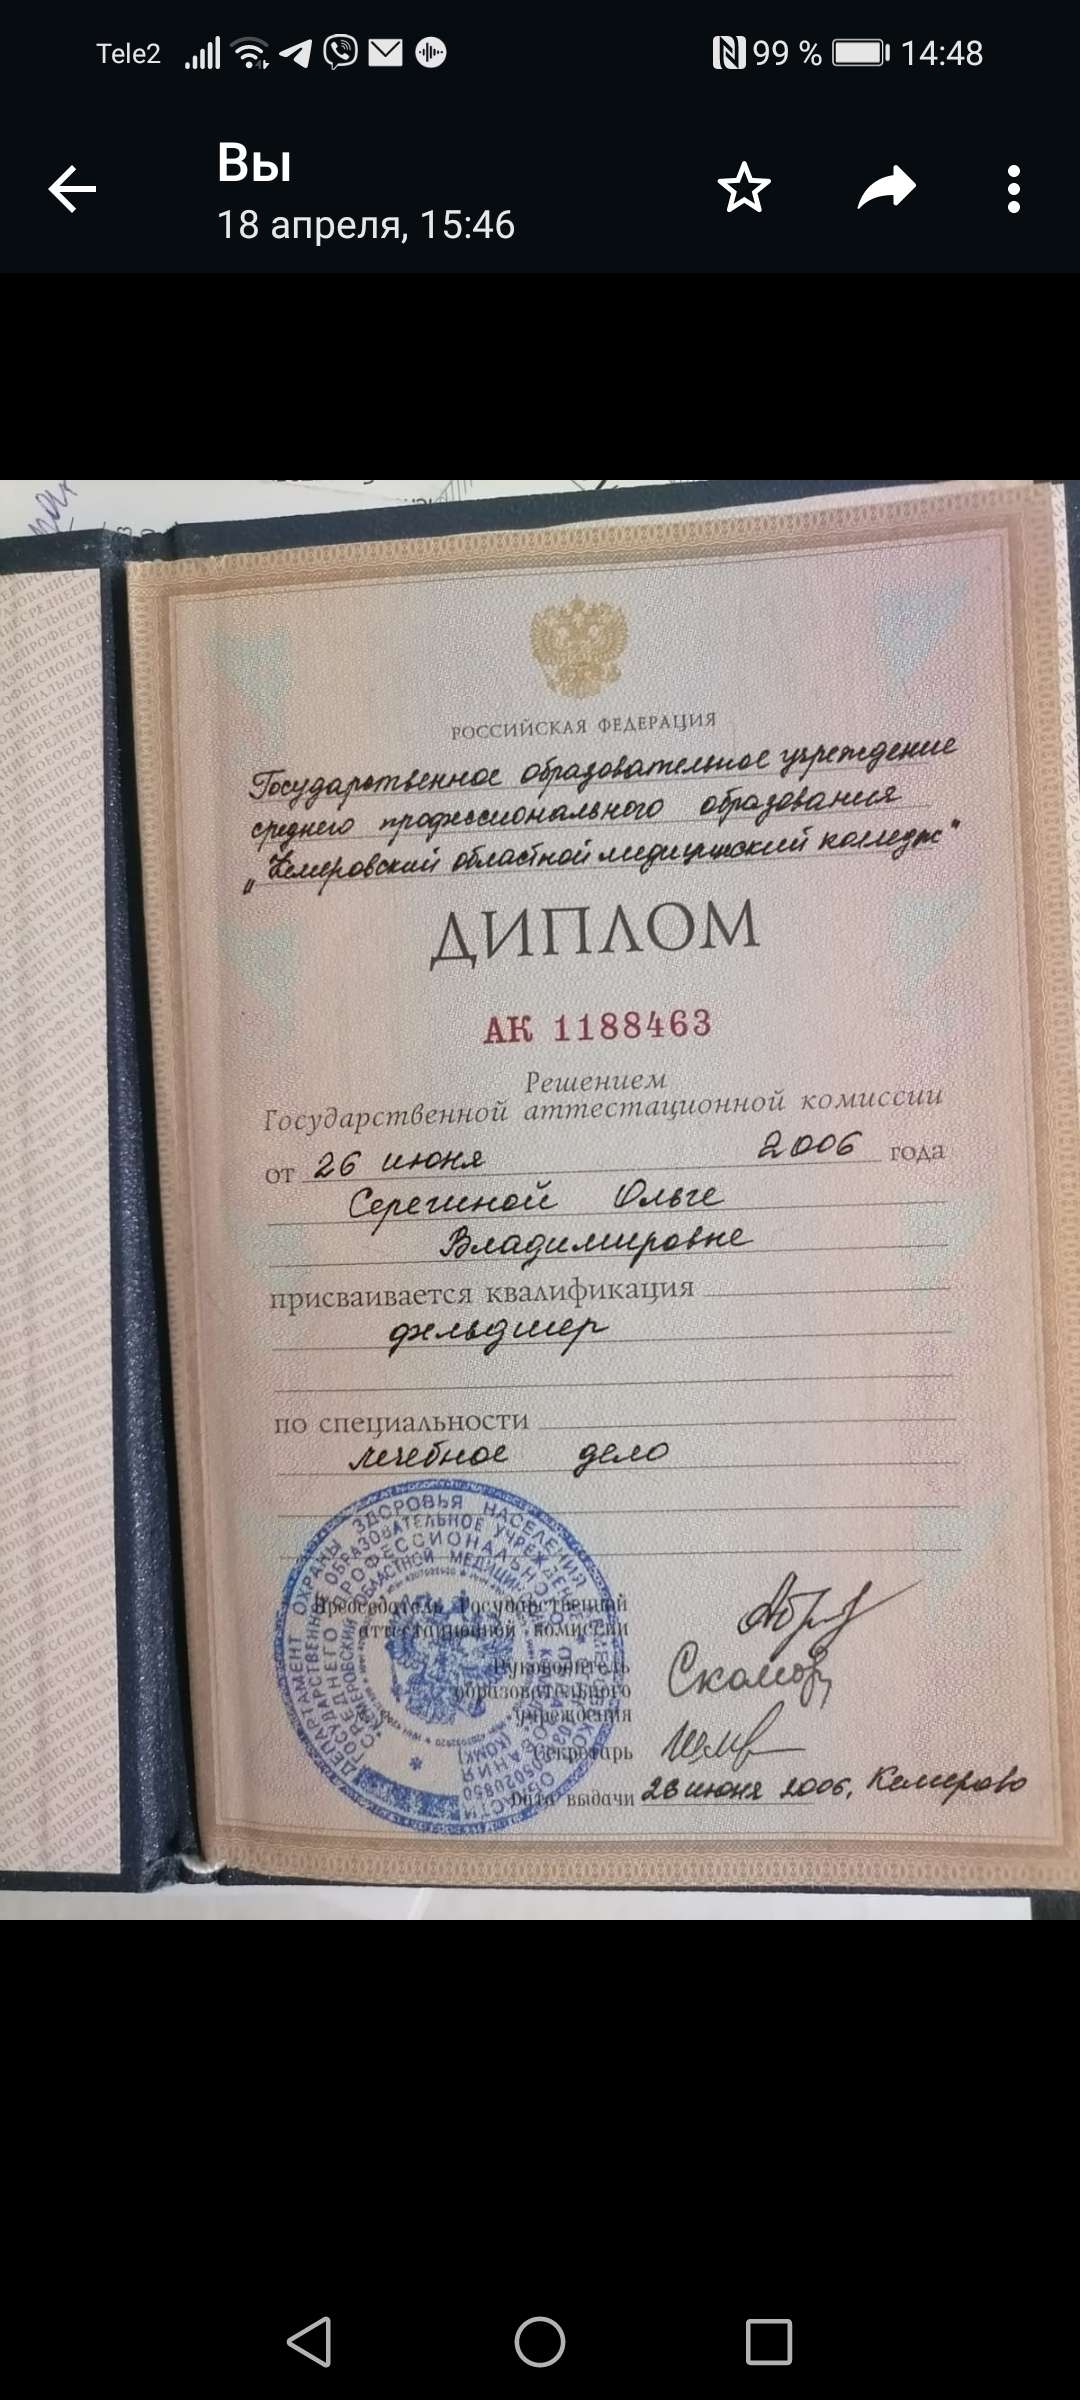 Tele2 99 % 14:48
Вы
18 апреля, 15:46
РОССИЙСКАЯ ФЕДЕРАЦИЯ
Государственное образовательное учреждение
среднего профессионального образования
"Кемеровский областной медицинский колледж"
ДИПЛОМ
АК 1188463
Решением
Государственной аттестационной комиссии
от 26 июня 2006 года
Серегиной Ольге
Владимировне
присваивается квалификация
фельдшер
по специальности
лечебное дело
Председатель Государственной
аттестационной комиссии
Руководитель
образовательного
учреждения
Секретарь
Дата выдачи 26 июня 2006, Кемерово
ДЕПАРТАМЕНТ ОХРАНЫ ЗДОРОВЬЯ НАСЕЛЕНИЯ